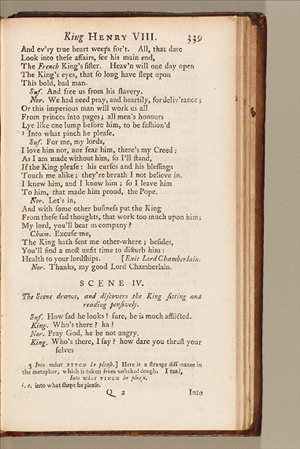 King HENRY VIII. 339
And ev'ry true heart weeps for't. All, that dare
Look into these affairs, see his main end,
The French King's sister. Heav'n will one day open
The King's eyes, that so long have slept upon
This bold, bad man.
Suf. And free us from his slavery.
Nor. We had need pray, and heartily, for deliv'rance;
Or this imperious man will work us all
From princes into pages; all men's honours
Lye like one lump before him, to be fashion'd
3 Into what pinch he please.
Suf. For me, my lords,
I love him not, nor fear him, there's my Creed:
As I am made without him, so I'll stand,
If the King please: his curses and his blessings
Touch me alike; they're breath I not believe in.
I knew him, and I know him; so I leave him
To him, that made him proud, the Pope.
Nor. Let's in,
And with some other business put the King
From these sad thoughts, that work too much upon him;
My lord, you'll bear us company?
Cham. Excuse me,
The King hath sent me other-where; besides,
You'll find a most unfit time to disturb him:
Health to your lordships. [Exit Lord Chamberlain.
Nor. Thanks, my good Lord Chamberlain.
SCENE IV.
The Scene draws, and discovers the King sitting and
reading pensively.
Suf. How sad he looks! sure, he is much afflicted.
King. Who's there? ha?
Nor. Pray God, he be not angry.
King. Who's there, I say? how dare you thrust your
selves
3 Into what PITCH he please.] Here is a strange dissonance in
the metaphor, which is taken from unbaked dough. I read,
Into what PINCH he please,
i. e. into what shape he please.
Q 2 Into